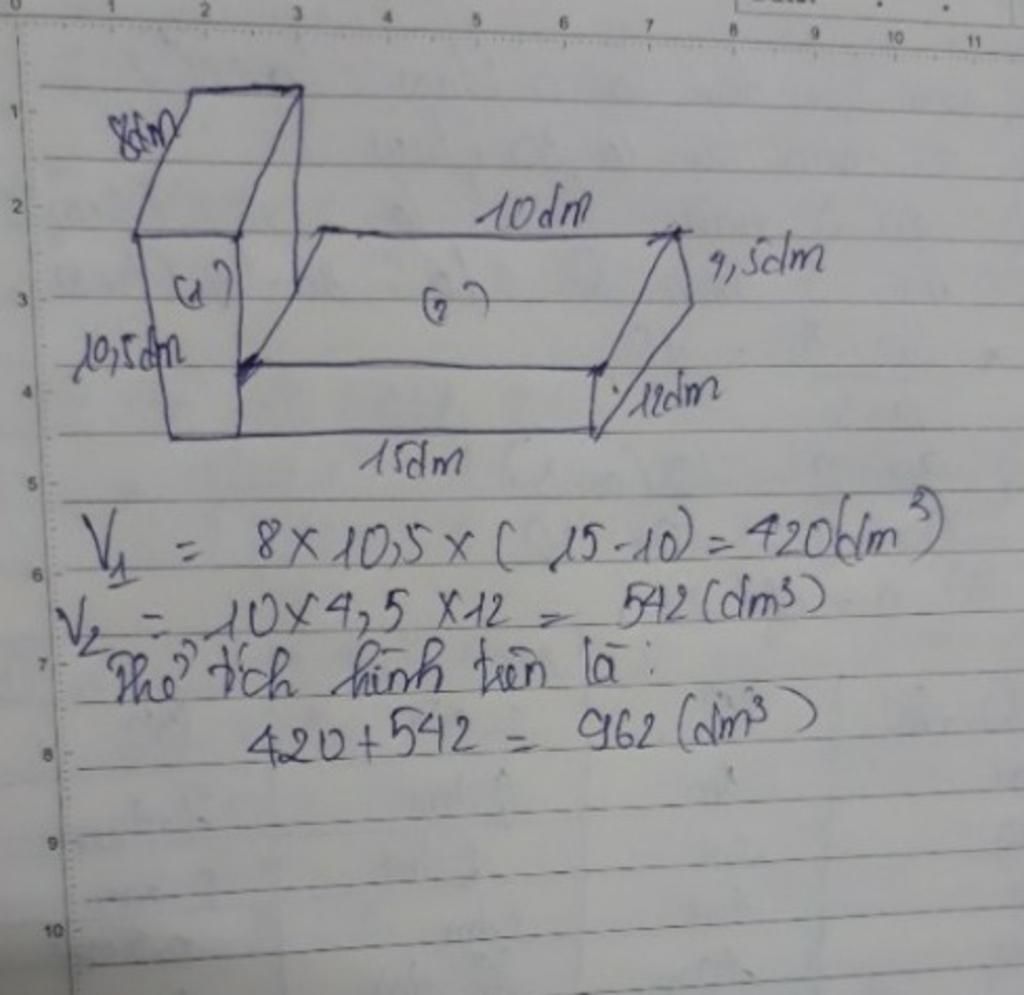 0 1 2 3 4 5 6 7 8 9 10 11
8dm
10dm
(1)
(2)
4,5dm
10,5dm
12dm
15dm
V₁ = 8 × 10,5 × ( 15 - 10) = 420(dm³)
V₂ = 10 × 4,5 × 12 = 542 (dm³)
Thể tích hình trên là :
420 + 542 = 962 (dm³)
1
2
3
4
5
6
7
8
9
10